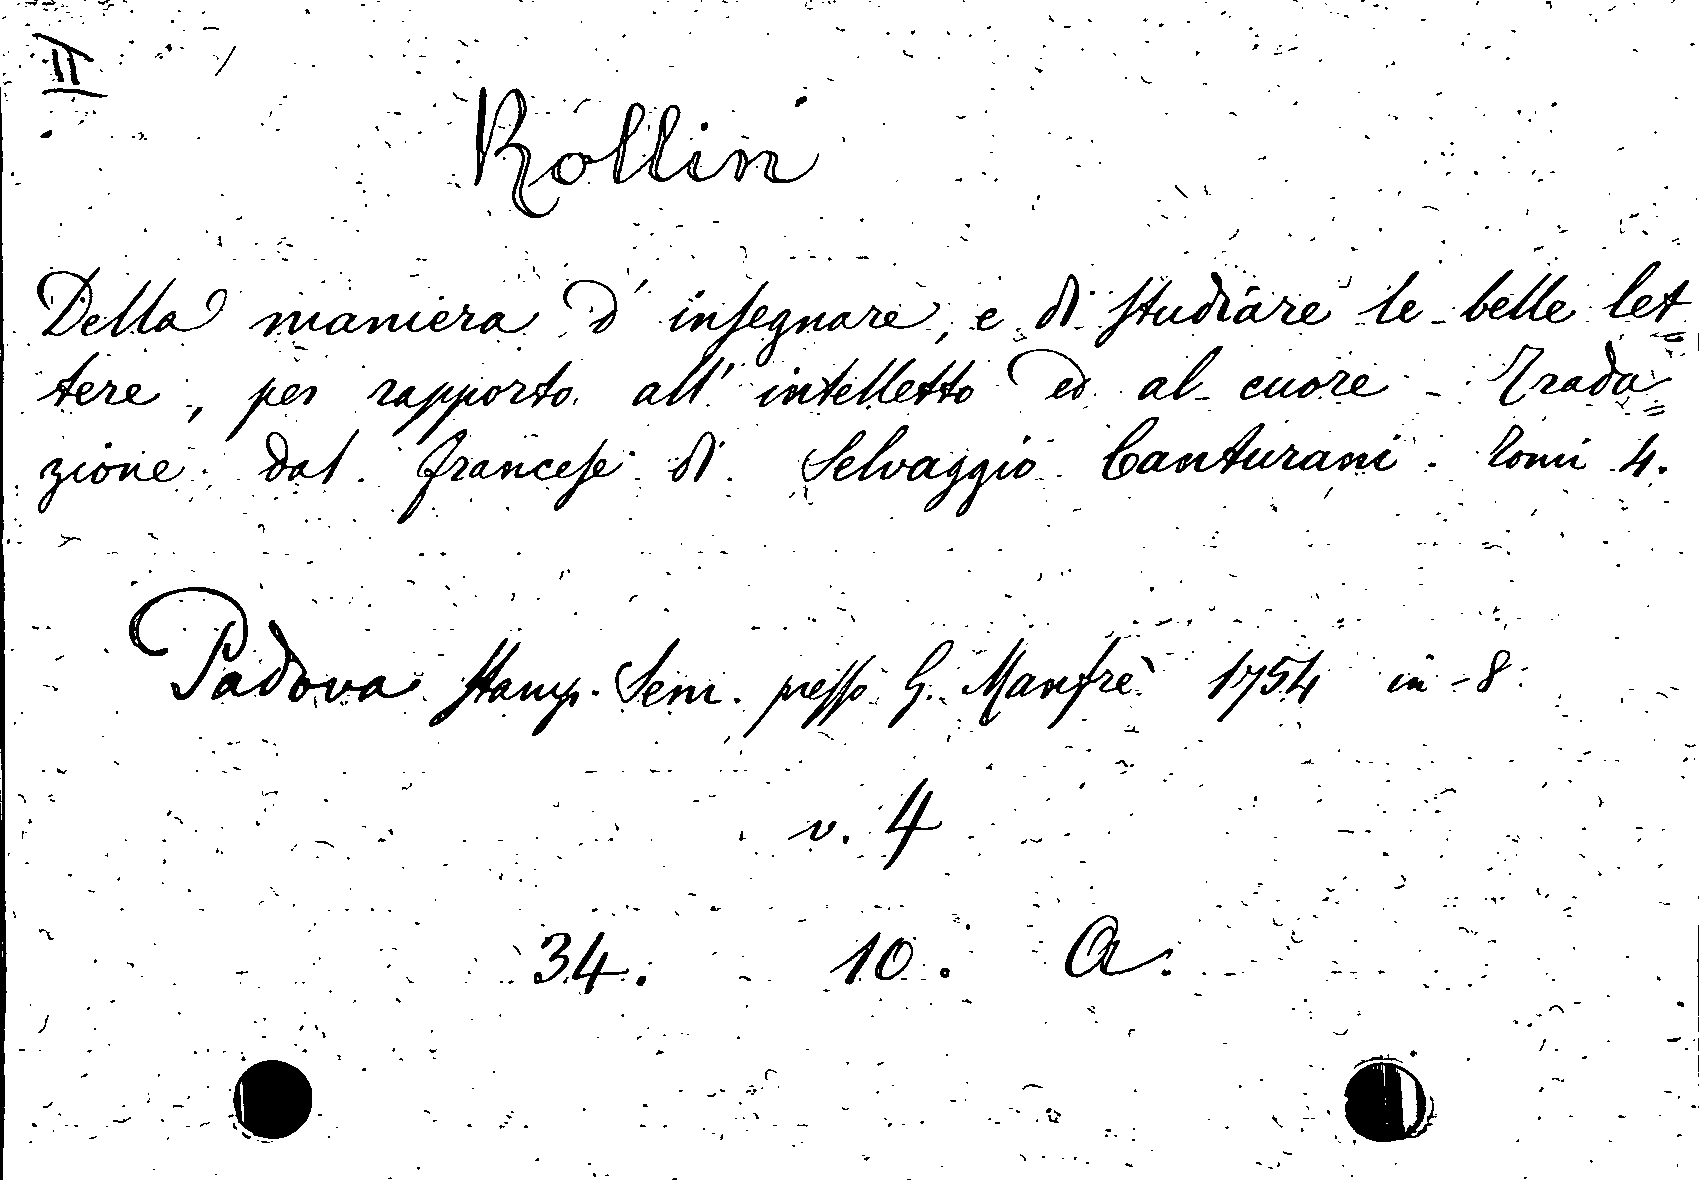 II
Rollin
Della maniera d' insegnare, e di studiare le belle let
tere, per rapporto all' intelletto ed al cuore - Tradu
zione dal francese di Selvaggio Canturani. Tomi 4.
Padova Stamp. Sem. presso G. Manfrè 1754 in-8.
v. 4
34. 10. A.